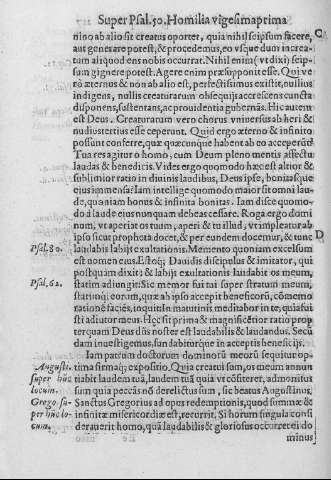 Super Psal. 50. Homilia vigesimaprima
nino ab alio sit creatus oportet, quia nihil seipsum facere, C
aut generare potest, & procedemus, eo usque dum increa-
tum aliquod ens nobis occurrat. Nihil enim (ut dixi) seip-
sum gignere potest. Agere enim præsupponit esse. Qui ve
rò æternus & non ab alio est, perfectissimus existit, nullius
indigens, nulli creaturarum obsequij accrescens cuncta
disponens, sustentans, ac providentia gubernās. Hic autem
est Deus. Creaturarum vero chorus vniuersus ab heri &
nudiustertius esse ceperunt. Quid ergo æterno & infinito
possunt conferre, quæ quæcunque habent ab eo acceperūt?
Tua res agitur ô homo, cum Deum pleno mentis affectu
laudas & benedicis. Vides ergo quomodo hæc est altior &
sublimior ratio in diuinis laudibus, Deus ipse, bonitasque
eius immensa? Iam intellige quomodo maior sit omni lau-
de, quoniam bonus & infinita bonitas. Iam disce quomo-
dò à laude eius nunquam debeas cessare. Roga ergo domi
num, vt aperiat os tuum, aperi & tu illud, vt impleatur ab
ipso sicut prophata docet, & per eundem docemur, & tunc D
Psal. 80. laudabit labijs exultationis. Memento quoniam excelsum
est nomen eius. Estoq; Dauidis discipulus & imitator, qui
postquam dixit: & labijs exultationis laudabit os meum,
Psal. 62. statim adiungit: Sic memor fui tui super stratum meum,
statimq; eorum, quæ ab ipso accepit beneficorū, cōmemo
rationē facies, inquit: In matutinis meditabor in te, quia fu-
isti adiutor meus. Hæc sit prima & magnificētior ratio prop
terquam Deus dn̄s noster est laudabilis & laudandus. Secū
dam inuestigemus, fundabiturque in acceptis beneficijs.
Iam patrum doctorum dominorū meorū sequitur op-
Augusti. tima firmaq; expositio. Quia creatui sum, os meum annun
super hūc tiabit laudem tuā, laudem tuā quia vt cōfiterer, admonitus
locum. sum quia peccās nō derelictus sum, sic beatus Augustinus.
Grego. su- Sanctus Gregorius ad opus redemptionis, quod summæ &
per hūc lo- infinitæ misericordiæ est, recurrit. Si horum singula consi
cum. derauerit homo, quā laudabilis & gloriosus occurret ei do
minus